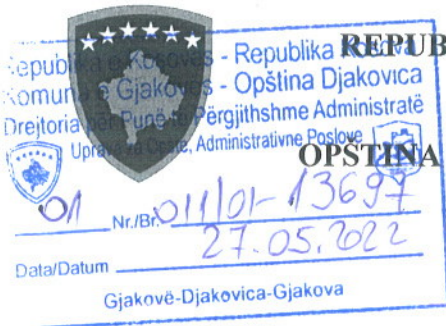 Republika e Kosovës - Republika Kosova
REPUB
Komuna e Gjakovës - Opština Djakovica
Drejtoria për Punë të Përgjithshme Administratë
Uprava za Opšte, Administrativne Poslove
OPŠTINA
01 Nr./Br. 011/01-13697
Data/Datum 27.05.2022
Gjakovë-Djakovica-Gjakova